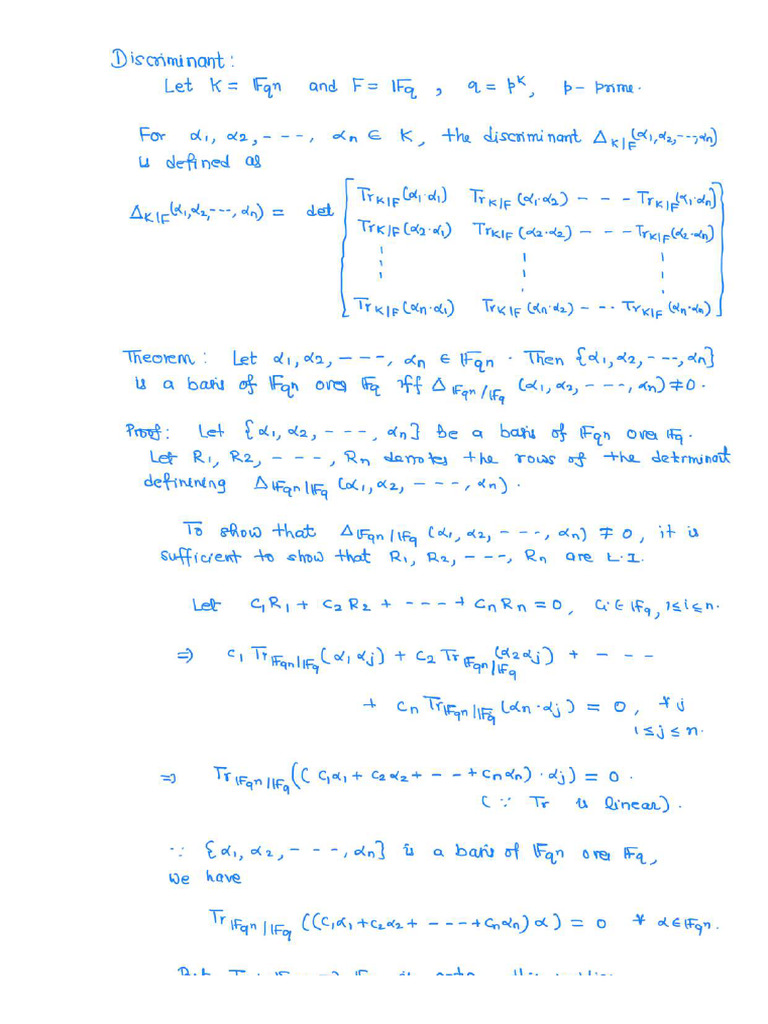 Discriminant:
Let K = 𝔽qⁿ and F = 𝔽q , q = pᵏ, p - prime.
For α₁, α₂, - - -, αₙ ∈ K, the discriminant Δ_K|F(α₁,α₂,--,αₙ)
is defined as
Δ_K|F(α₁,α₂,---,αₙ) = det [ Tr_K|F(α₁·α₁) Tr_K|F(α₁·α₂) - - - Tr_K|F(α₁·αₙ)
Tr_K|F(α₂·α₁) Tr_K|F(α₂·α₂) - - - Tr_K|F(α₂·αₙ)
⋮ ⋮ ⋮
Tr_K|F(αₙ·α₁) Tr_K|F(αₙ·α₂) - - - Tr_K|F(αₙ·αₙ) ]
Theorem : Let α₁, α₂, - - - -, αₙ ∈ 𝔽qⁿ . Then {α₁, α₂, - - -, αₙ}
is a basis of 𝔽qⁿ over 𝔽q iff Δ_𝔽qⁿ/𝔽q (α₁, α₂, - - -, αₙ) ≠ 0.
Proof: Let {α₁, α₂, - - -, αₙ} be a basis of 𝔽qⁿ over 𝔽q.
Let R₁, R₂, - - -, Rₙ denotes the rows of the detrminant
definining Δ_𝔽qⁿ|𝔽q (α₁, α₂, - - -, αₙ).
To show that Δ_𝔽qⁿ/𝔽q (α₁, α₂, - - -, αₙ) ≠ 0, it is
sufficient to show that R₁, R₂, - - -, Rₙ are L.I.
Let c₁R₁ + c₂R₂ + - - - + cₙRₙ = 0, cᵢ ∈ 𝔽q, 1≤i≤n.
⇒ c₁ Tr_𝔽qⁿ|𝔽q(α₁αⱼ) + c₂ Tr_𝔽qⁿ|𝔽q(α₂αⱼ) + - - -
+ cₙ Tr_𝔽qⁿ|𝔽q(αₙ·αⱼ) = 0, ∀ j
1≤j≤n.
⇒ Tr_𝔽qⁿ|𝔽q((c₁α₁ + c₂α₂ + - - + cₙαₙ)·αⱼ) = 0.
(∵ Tr is linear).
∵ {α₁, α₂, - - -, αₙ} is a basis of 𝔽qⁿ over 𝔽q,
we have
Tr_𝔽qⁿ/𝔽q ((c₁α₁+c₂α₂+ - - - + cₙαₙ) α) = 0 ∀ α∈𝔽qⁿ.